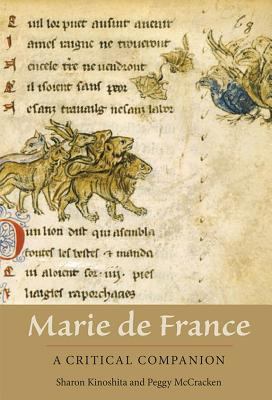 uil lor puet ausint auenir
iames raigne ne troueront
encele tre ne uendront
il soient sans peor
esanz trauailg nesanz labor
un lion dist qui asembla
toutes les bestes & manda
ui aloient pres
Marie de France
A CRITICAL COMPANION
Sharon Kinoshita and Peggy McCracken